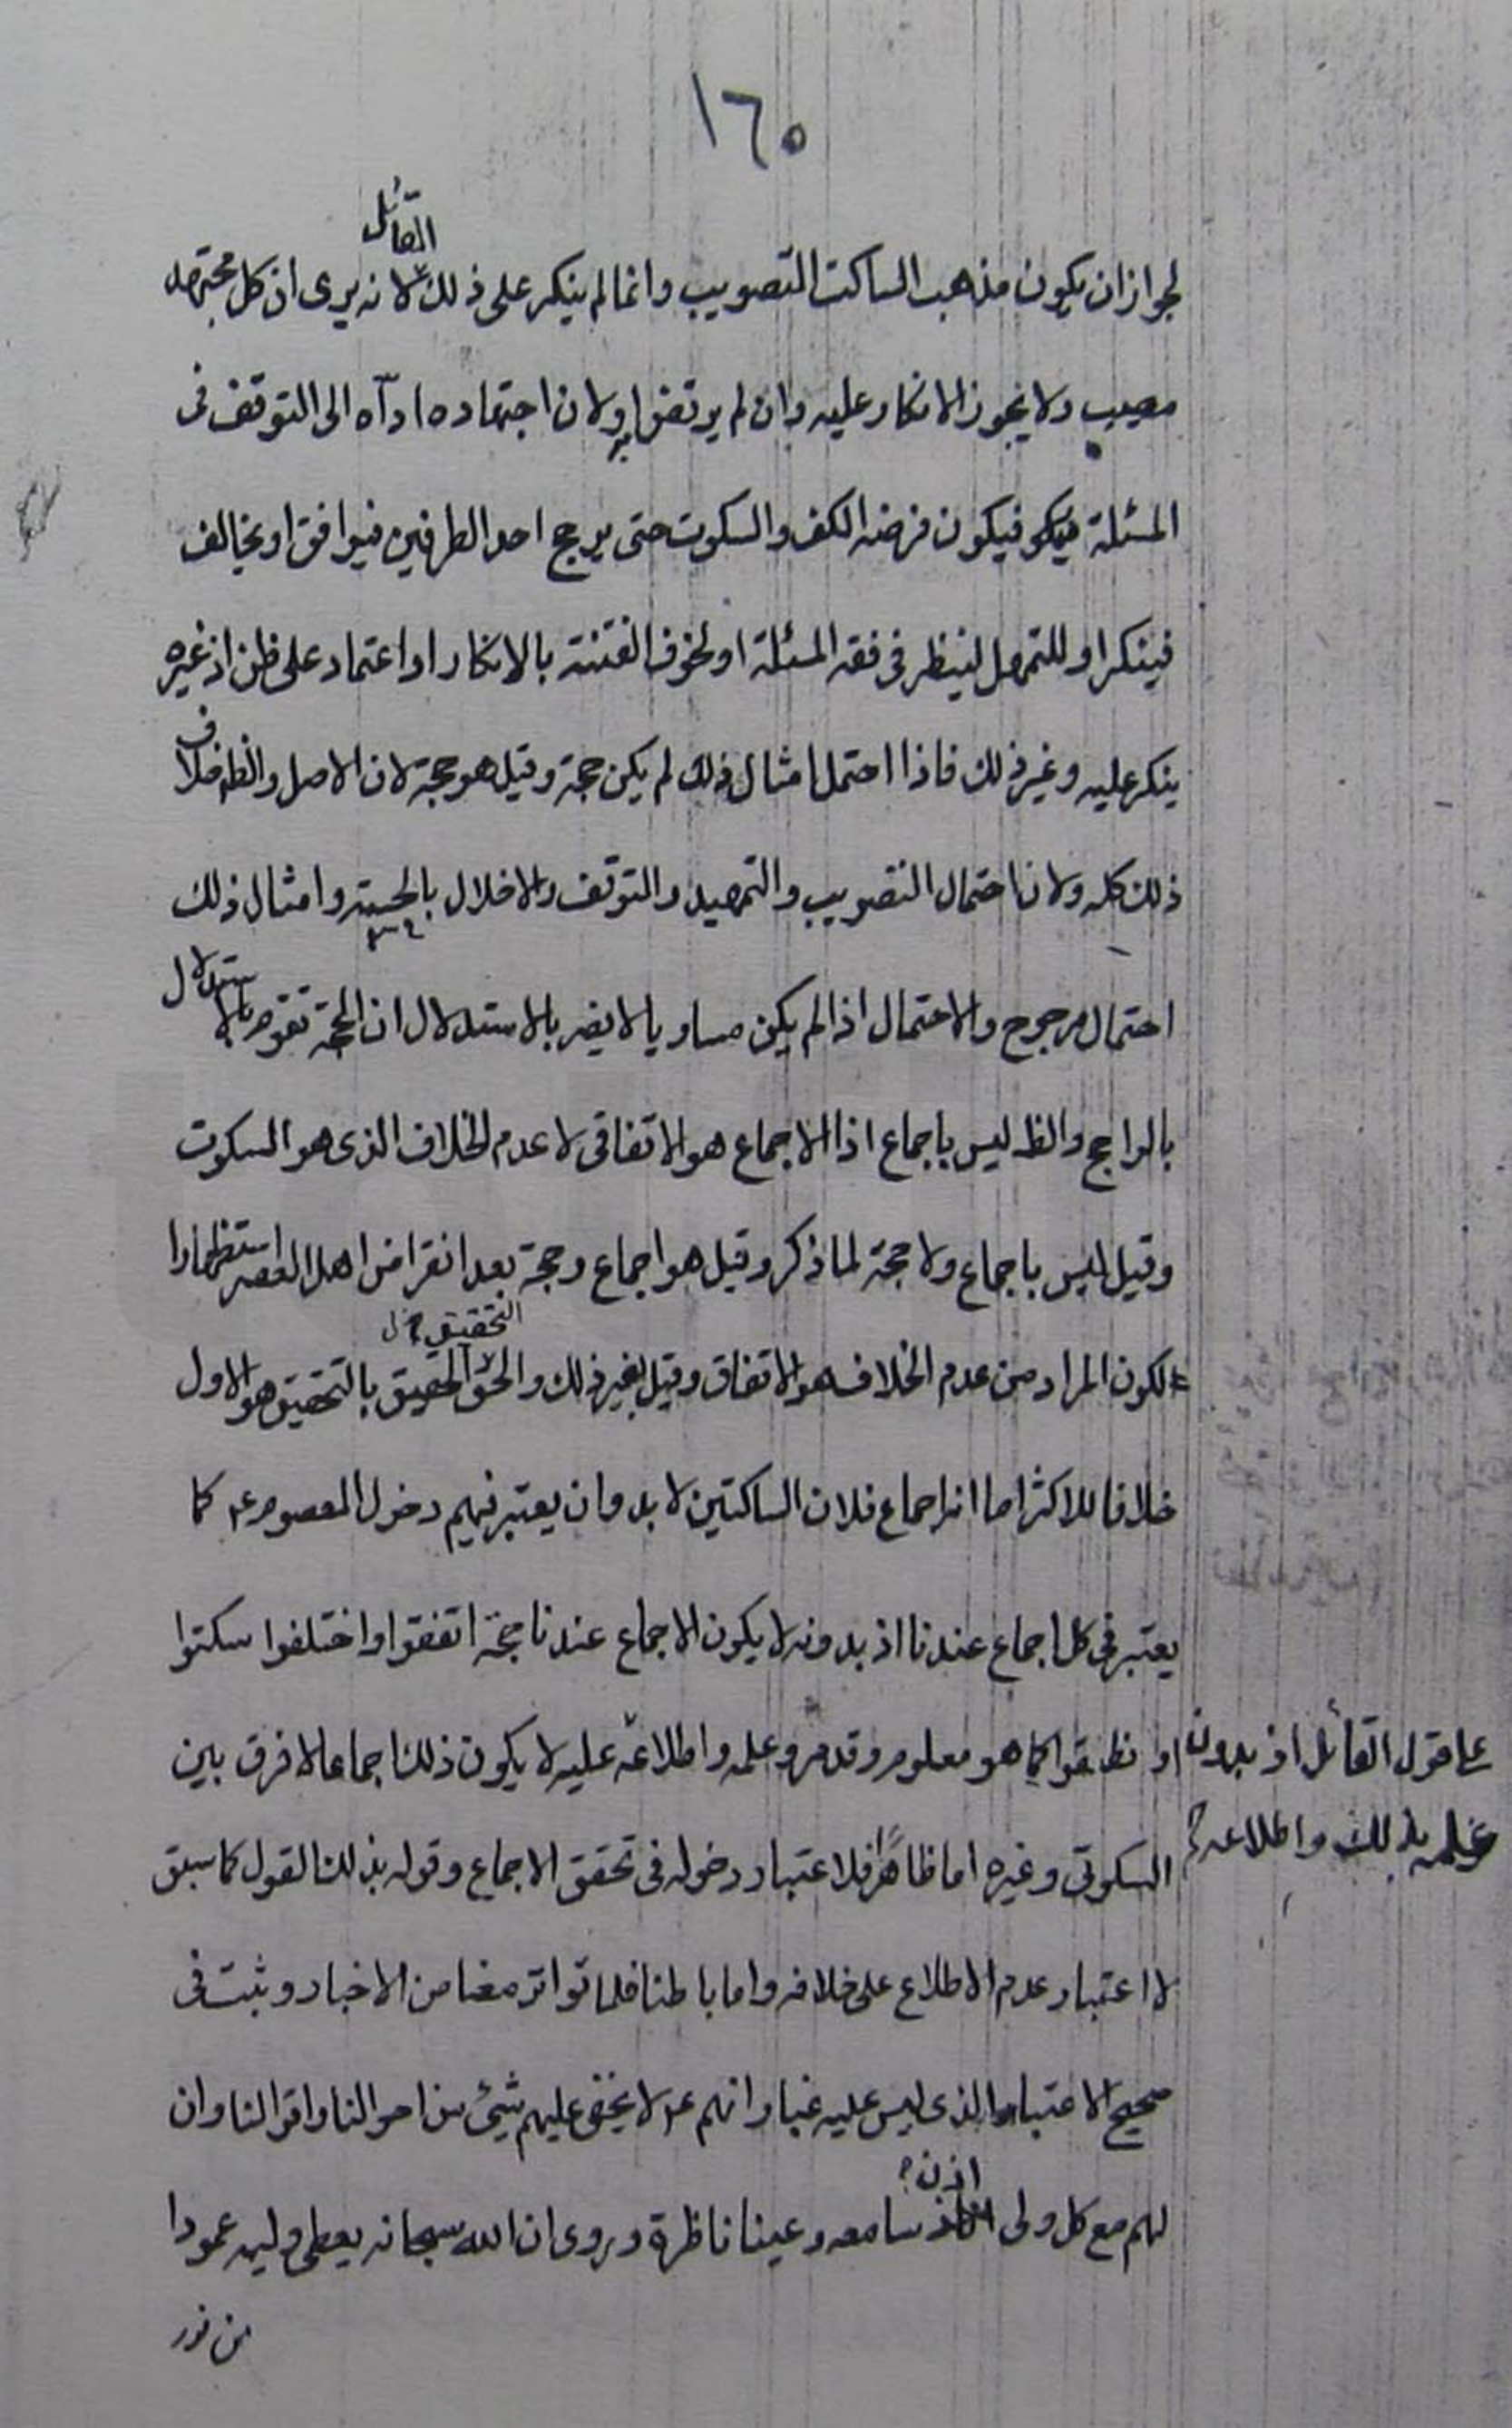 ١٦٠
القائل
لجواز ان يكون مذهب الساكت التصويب وانما لم ينكر على ذلك لانه يرى ان كل مجتهد
مصيب ولا يجوز الانكار عليه وان لم يرتض به ولان اجتهاده ادّاه الى التوقف فى
المسئلة فيكون فرضه الكف والسكوت حتى يرجح احد الطرفين فيوافق او يخالف
فينكر او للتمهل لينظر فى فقه المسئلة او لخوف الفتنة بالانكار او اعتماد على ظن ان غيره
ينكر عليه وغير ذلك فاذا احتمل امثال ذلك لم يكن حجة وقيل هو حجة لان الاصل والظ خلاف
ذلك كله ولان احتمال التصويب والتمهيد والتوقف والاخلال بالحسبة وامثال ذلك
احتمال مرجوح والاحتمال اذا لم يكن مساويا لا يضر بالاستدلال ان الحجة تقوم بالاستدلال
بالراجح والظ ليس باجماع اذ الاجماع هو الاتفاقى لا عدم الخلاف الذى هو السكوت
وقيل ليس باجماع ولا حجة لما ذكر وقيل هو اجماع وحجة بعد انقراض اهل العصر استظهارا
التحقيق
لكون المراد من عدم الخلاف هو الاتفاق وقيل بغير ذلك والحق الحقيق بالتحقيق هو الاول
خلافا للاكثر اما انه اجماع فلان الساكتين لا بد وان يعتبر فيهم دخول المعصوم ع كما
يعتبر فى كل اجماع عندنا اذ بدونه لا يكون الاجماع عندنا حجة اتفقوا او اختلفوا سكتوا
او نطقوا كما هو معلوم وقد مر وعلمه واطلاعه عليه لا يكون ذلك اجماعا لا فرق بين
على قول القائل اذ بدون
علمه بذلك واطلاعه
السكوتى وغيره اما ظاهرًا فلاعتبار دخوله فى تحقق الاجماع وقوله بذلك القول كما سبق
لا اعتبار عدم الاطلاع على خلافه واما باطنا فلما تواتر معنا من الاخبار وثبت فى
صحيح الاعتبار الذى ليس عليه غبار انهم ع لا يخفى عليهم شيئ من احوالنا واقوالنا وان
اذن
لهم مع كل ولى سامعه وعينا ناظرة وروى ان الله سبحانه يعطى وليه عمودا
من نور